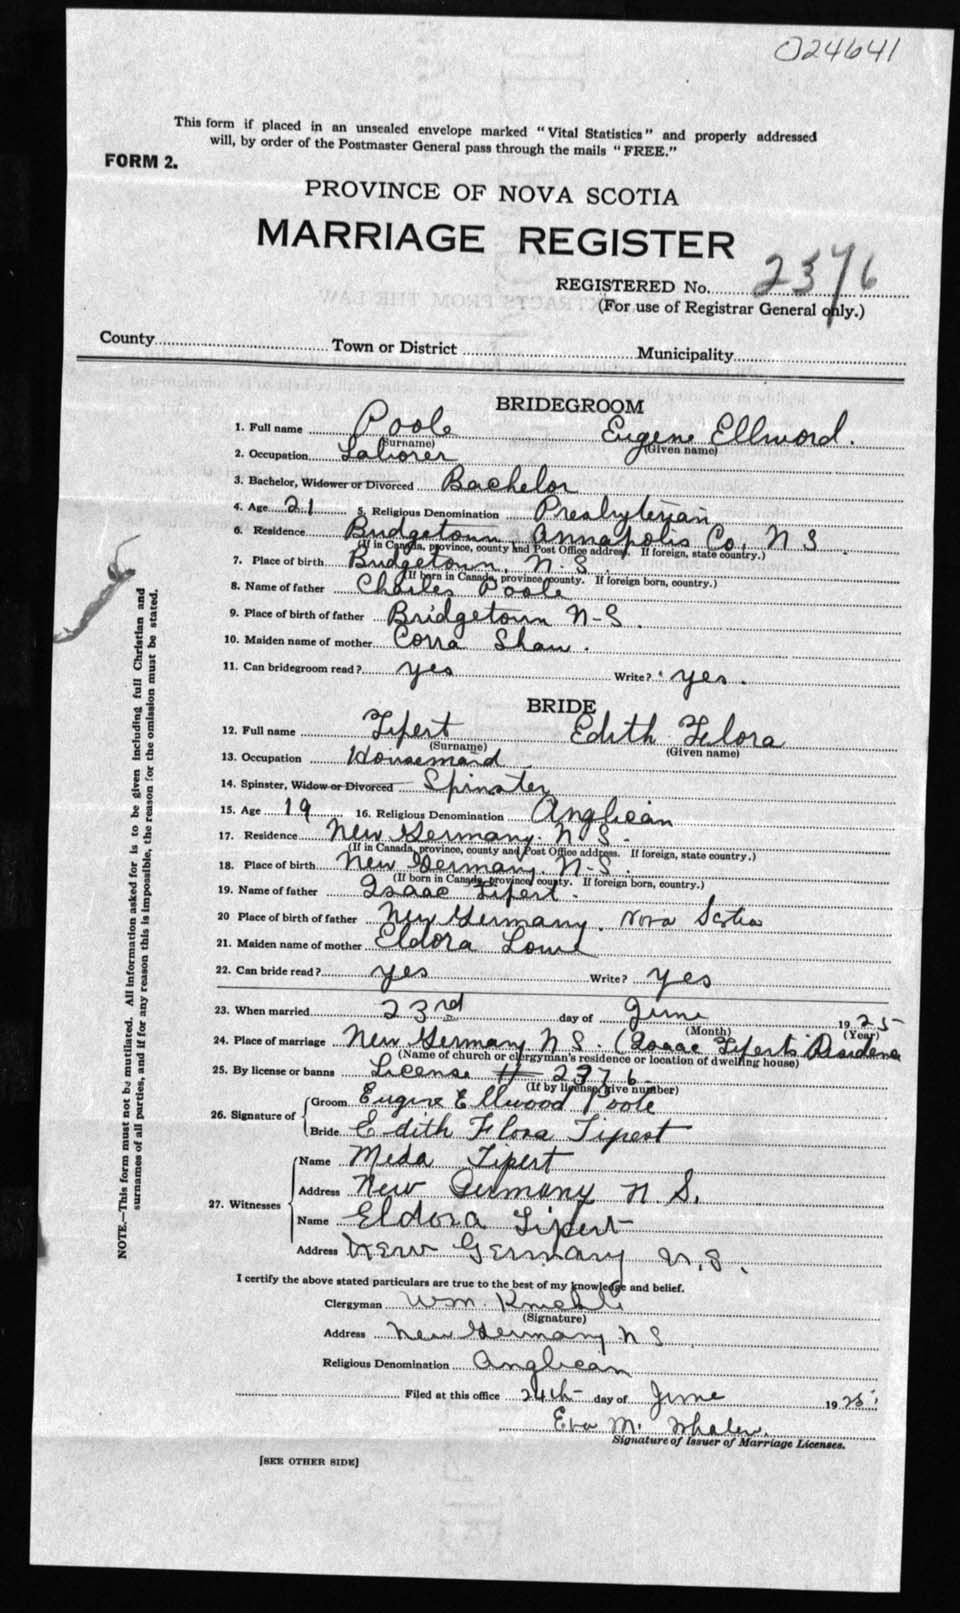 024641
This form if placed in an unsealed envelope marked "Vital Statistics" and properly addressed
will, by order of the Postmaster General pass through the mails "FREE."
FORM 2.
PROVINCE OF NOVA SCOTIA
MARRIAGE REGISTER
REGISTERED No. 2376
(For use of Registrar General only.)
County Town or District Municipality
BRIDEGROOM
1. Full name Poole Eugene Ellwood.
(Surname) (Given name)
2. Occupation Laborer
3. Bachelor, Widower or Divorced Bachelor
4. Age 21 5. Religious Denomination Presbyterian
6. Residence Bridgetown, Annapolis Co, N S
(If in Canada, province, county and Post Office address. If foreign, state country.)
7. Place of birth Bridgetown, N. S.
(If born in Canada, province, county. If foreign born, country.)
8. Name of father Charles Poole
9. Place of birth of father Bridgetown N-S.
10. Maiden name of mother Corra Shaw.
11. Can bridegroom read? yes Write? yes.
BRIDE
12. Full name Tipert Edith Felora
(Surname) (Given name)
13. Occupation Housemaid
14. Spinster, Widow or Divorced Spinster
15. Age 19 16. Religious Denomination Anglican
17. Residence New Germany. N. S.
(If in Canada, province, county and Post Office address. If foreign, state country.)
18. Place of birth New Germany N-S.
(If born in Canada, province, county. If foreign born, country.)
19. Name of father Isaac Tipert.
20 Place of birth of father New Germany. Nova Scotia
21. Maiden name of mother Eldora Lowe
22. Can bride read? yes Write? yes
23. When married 23rd day of June 1925
(Month) (Year)
24. Place of marriage New Germany N S. (Isaac Tiperts Residence
(Name of church or clergyman's residence or location of dwelling house)
25. By license or banns License # 2376
(If by license, give number)
26. Signature of Groom Eugine Ellwood Poole
Bride Edith Flora Tipert
27. Witnesses Name Meda Tipert
Address New Germany N. S.
Name Eldora Tipert
Address New Germany N. S.
I certify the above stated particulars are true to the best of my knowledge and belief.
Clergyman Wm.
(Signature)
Address New Germany N S
Religious Denomination Anglican
Filed at this office 24th day of June 1925
Eva M. Whalen.
Signature of Issuer of Marriage Licenses.
[SEE OTHER SIDE]
NOTE.—This form must not be mutilated. All information asked for is to be given including full Christian and
surnames of all parties, and if for any reason this is impossible, the reason for the omission must be stated.